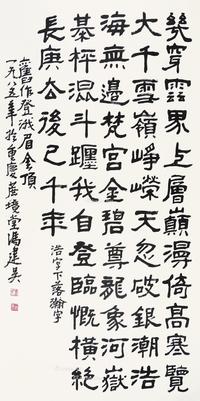 幾穿雲界上層巔漫倚高寒覽
大千雪嶺崢嶸天忽破銀潮浩
海無邊梵宮金碧尊龍象河嶽
棊枰混斗躔我自登臨慨橫絕
長庚公後已千年
浩字下落瀚字
舊作登峨眉金頂
一九八五年於重慶堂馮建吳